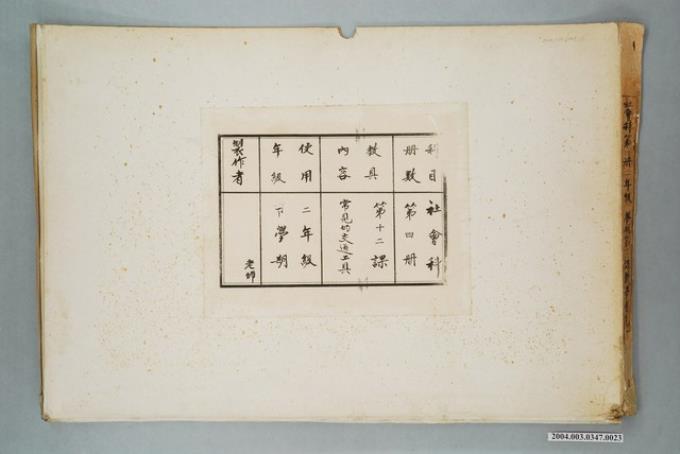 科目 社會科
册數 第四册
教具內容 第十二課
常見的交通工具
使用年級 二年級下學期
製作者 老師
社會科第 册 二年級
2004.003.0347.0023